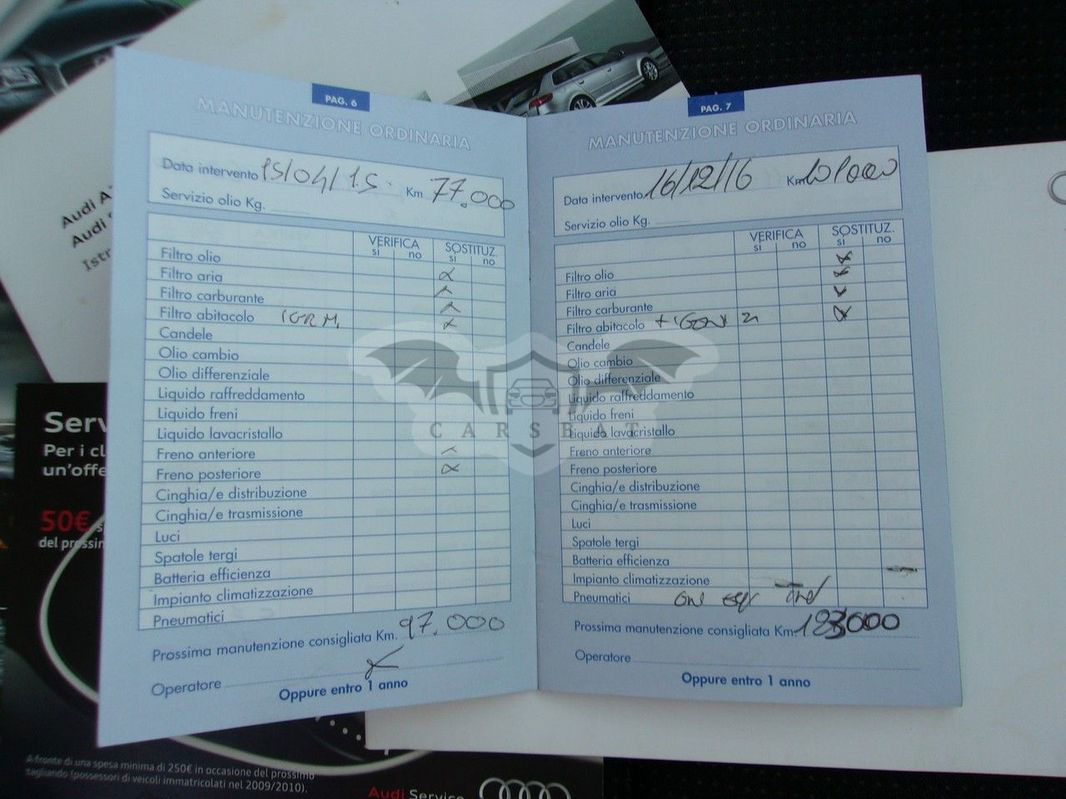 PAG. 6
MANUTENZIONE ORDINARIA
Data intervento 15/04/15. Km 77.000
Servizio olio Kg.
VERIFICA SOSTITUZ.
si no si no
Filtro olio
Filtro aria
Filtro carburante
Filtro abitacolo
Candele
Olio cambio
Olio differenziale
Liquido raffreddamento
Liquido freni
Liquido lavacristallo
Freno anteriore
Freno posteriore
Cinghia/e distribuzione
Cinghia/e trasmissione
Luci
Spatole tergi
Batteria efficienza
Impianto climatizzazione
Pneumatici
Prossima manutenzione consigliata Km. 97.000
Operatore
Oppure entro 1 anno
PAG. 7
MANUTENZIONE ORDINARIA
Data intervento 16/12/16 Km
Servizio olio Kg.
VERIFICA SOSTITUZ.
si no si no
Filtro olio
Filtro aria
Filtro carburante
Filtro abitacolo
Candele
Olio cambio
Olio differenziale
Liquido raffreddamento
Liquido freni
Liquido lavacristallo
Freno anteriore
Freno posteriore
Cinghia/e distribuzione
Cinghia/e trasmissione
Luci
Spatole tergi
Batteria efficienza
Impianto climatizzazione
Pneumatici
Prossima manutenzione consigliata Km.
Operatore
Oppure entro 1 anno
CARSBAT
Audi
Audi
Serv
Per i cl
un'offe
50€
del prossim
A fronte di una spesa minima di 250€ in occasione del prossimo
tagliando (possessori di veicoli immatricolati nel 2009/2010).
Audi Service